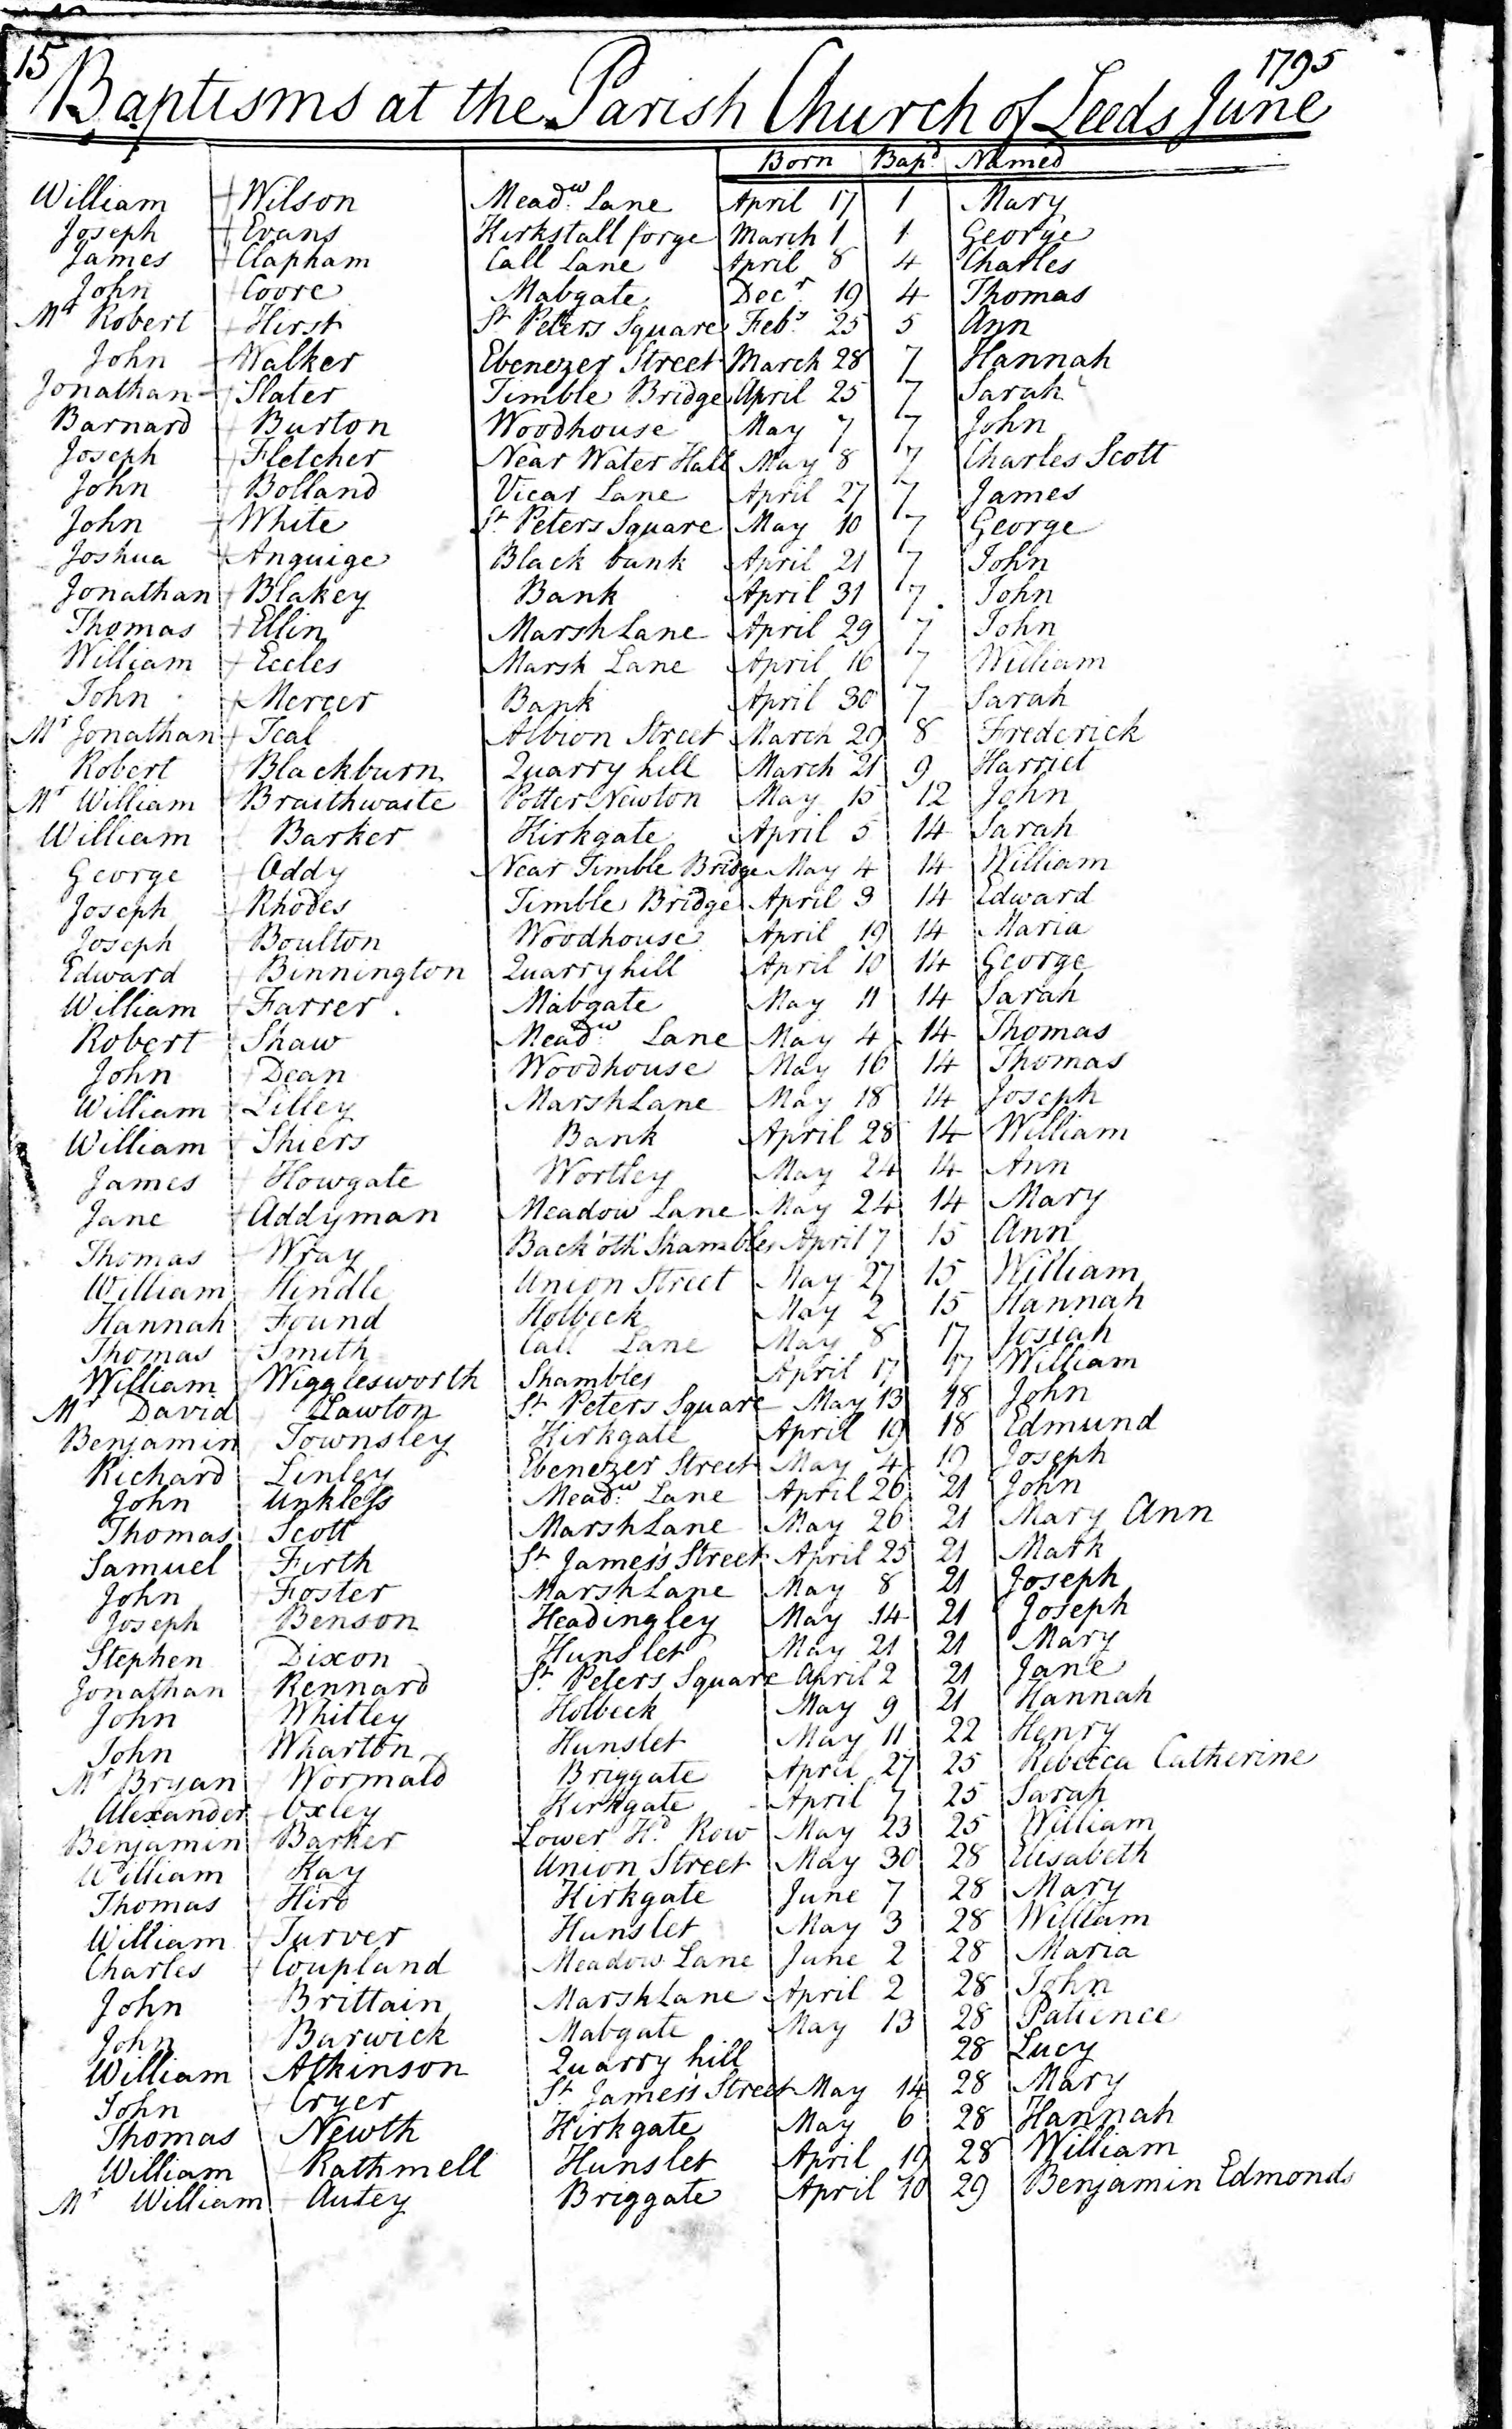 15
1795
Baptisms at the Parish Church of Leeds June
Born Bap.d Named
William Wilson Mead.w Lane April 17 1 Mary
Joseph Evans Kirkstall forge March 1 1 George
James Clapham Call Lane April 8 4 Charles
John Coore Mabgate Dec.r 19 4 Thomas
Mr Robert Hirst St Peters Square Feb.y 25 5 Ann
John Walker Ebenezer Street March 28 7 Hannah
Jonathan Slater Timble Bridge April 25 7 Sarah
Barnard Burton Woodhouse May 7 7 John
Joseph Fletcher Near Water Hall May 8 7 Charles Scott
John Bolland Vicar Lane April 27 7 James
John White St Peters Square May 10 7 George
Joshua Anguige Black bank April 21 7 John
Jonathan Blakey Bank April 31 7 John
Thomas Ellin Marsh Lane April 29 7 John
William Eccles Marsh Lane April 16 7 William
John Mercer Bank April 30 7 Sarah
Mr Jonathan Teal Albion Street March 29 8 Frederick
Robert Blackburn Quarry hill March 21 9 Harriet
Mr William Braithwaite Potter Newton May 15 12 John
William Barker Kirkgate April 5 14 Sarah
George Oddy Near Timble Bridge May 4 14 William
Joseph Rhodes Timble Bridge April 3 14 Edward
Joseph Boulton Woodhouse April 19 14 Maria
Edward Binnington Quarry hill April 10 14 George
William Farrer Mabgate May 11 14 Sarah
Robert Shaw Mead.w Lane May 4 14 Thomas
John Dean Woodhouse May 16 14 Thomas
William Lilley Marsh Lane May 18 14 Joseph
William Shiers Bank April 28 14 William
James Howgate Wortley May 24 14 Ann
Jane Addyman Meadow Lane May 24 14 Mary
Thomas Wray Back oth Shambles April 7 15 Ann
William Hindle Union Street May 27 15 William
Hannah Found Holbeck May 2 15 Hannah
Thomas Smith Call Lane May 8 17 Josiah
William Wigglesworth Shambles April 17 17 William
Mr David Lawton St Peters Square May 13 18 John
Benjamin Townsley Kirkgate April 19 18 Edmund
Richard Linley Ebenezer Street May 4 19 Joseph
John Unkless Mead.w Lane April 26 21 John
Thomas Scott Marsh Lane May 26 21 Mary Ann
Samuel Firth St James's Street April 25 21 Mark
John Foster Marsh Lane May 8 21 Joseph
Joseph Benson Headingley May 14 21 Joseph
Stephen Dixon Hunslet May 21 21 Mary
Jonathan Kennard St Peters Square April 2 21 Jane
John Whitley Holbeck May 9 21 Hannah
John Wharton Hunslet May 11 22 Henry
Mr Bryan Wormald Briggate April 27 25 Rebecca Catherine
Alexander Oxley Kirkgate April 7 25 Sarah
Benjamin Barker Lower H.d Row May 23 25 William
William Kay Union Street May 30 28 Elisabeth
Thomas Hird Kirkgate June 7 28 Mary
William Turver Hunslet May 3 28 William
Charles Coupland Meadow Lane June 2 28 Maria
John Brittain Marsh Lane April 2 28 John
John Barwick Mabgate May 13 28 Patience
William Atkinson Quarry hill 28 Lucy
John Cryer St James's Street May 14 28 Mary
Thomas Newth Kirkgate May 6 28 Hannah
William Rathmell Hunslet April 19 28 William
Mr William Autey Briggate April 10 29 Benjamin Edmonds